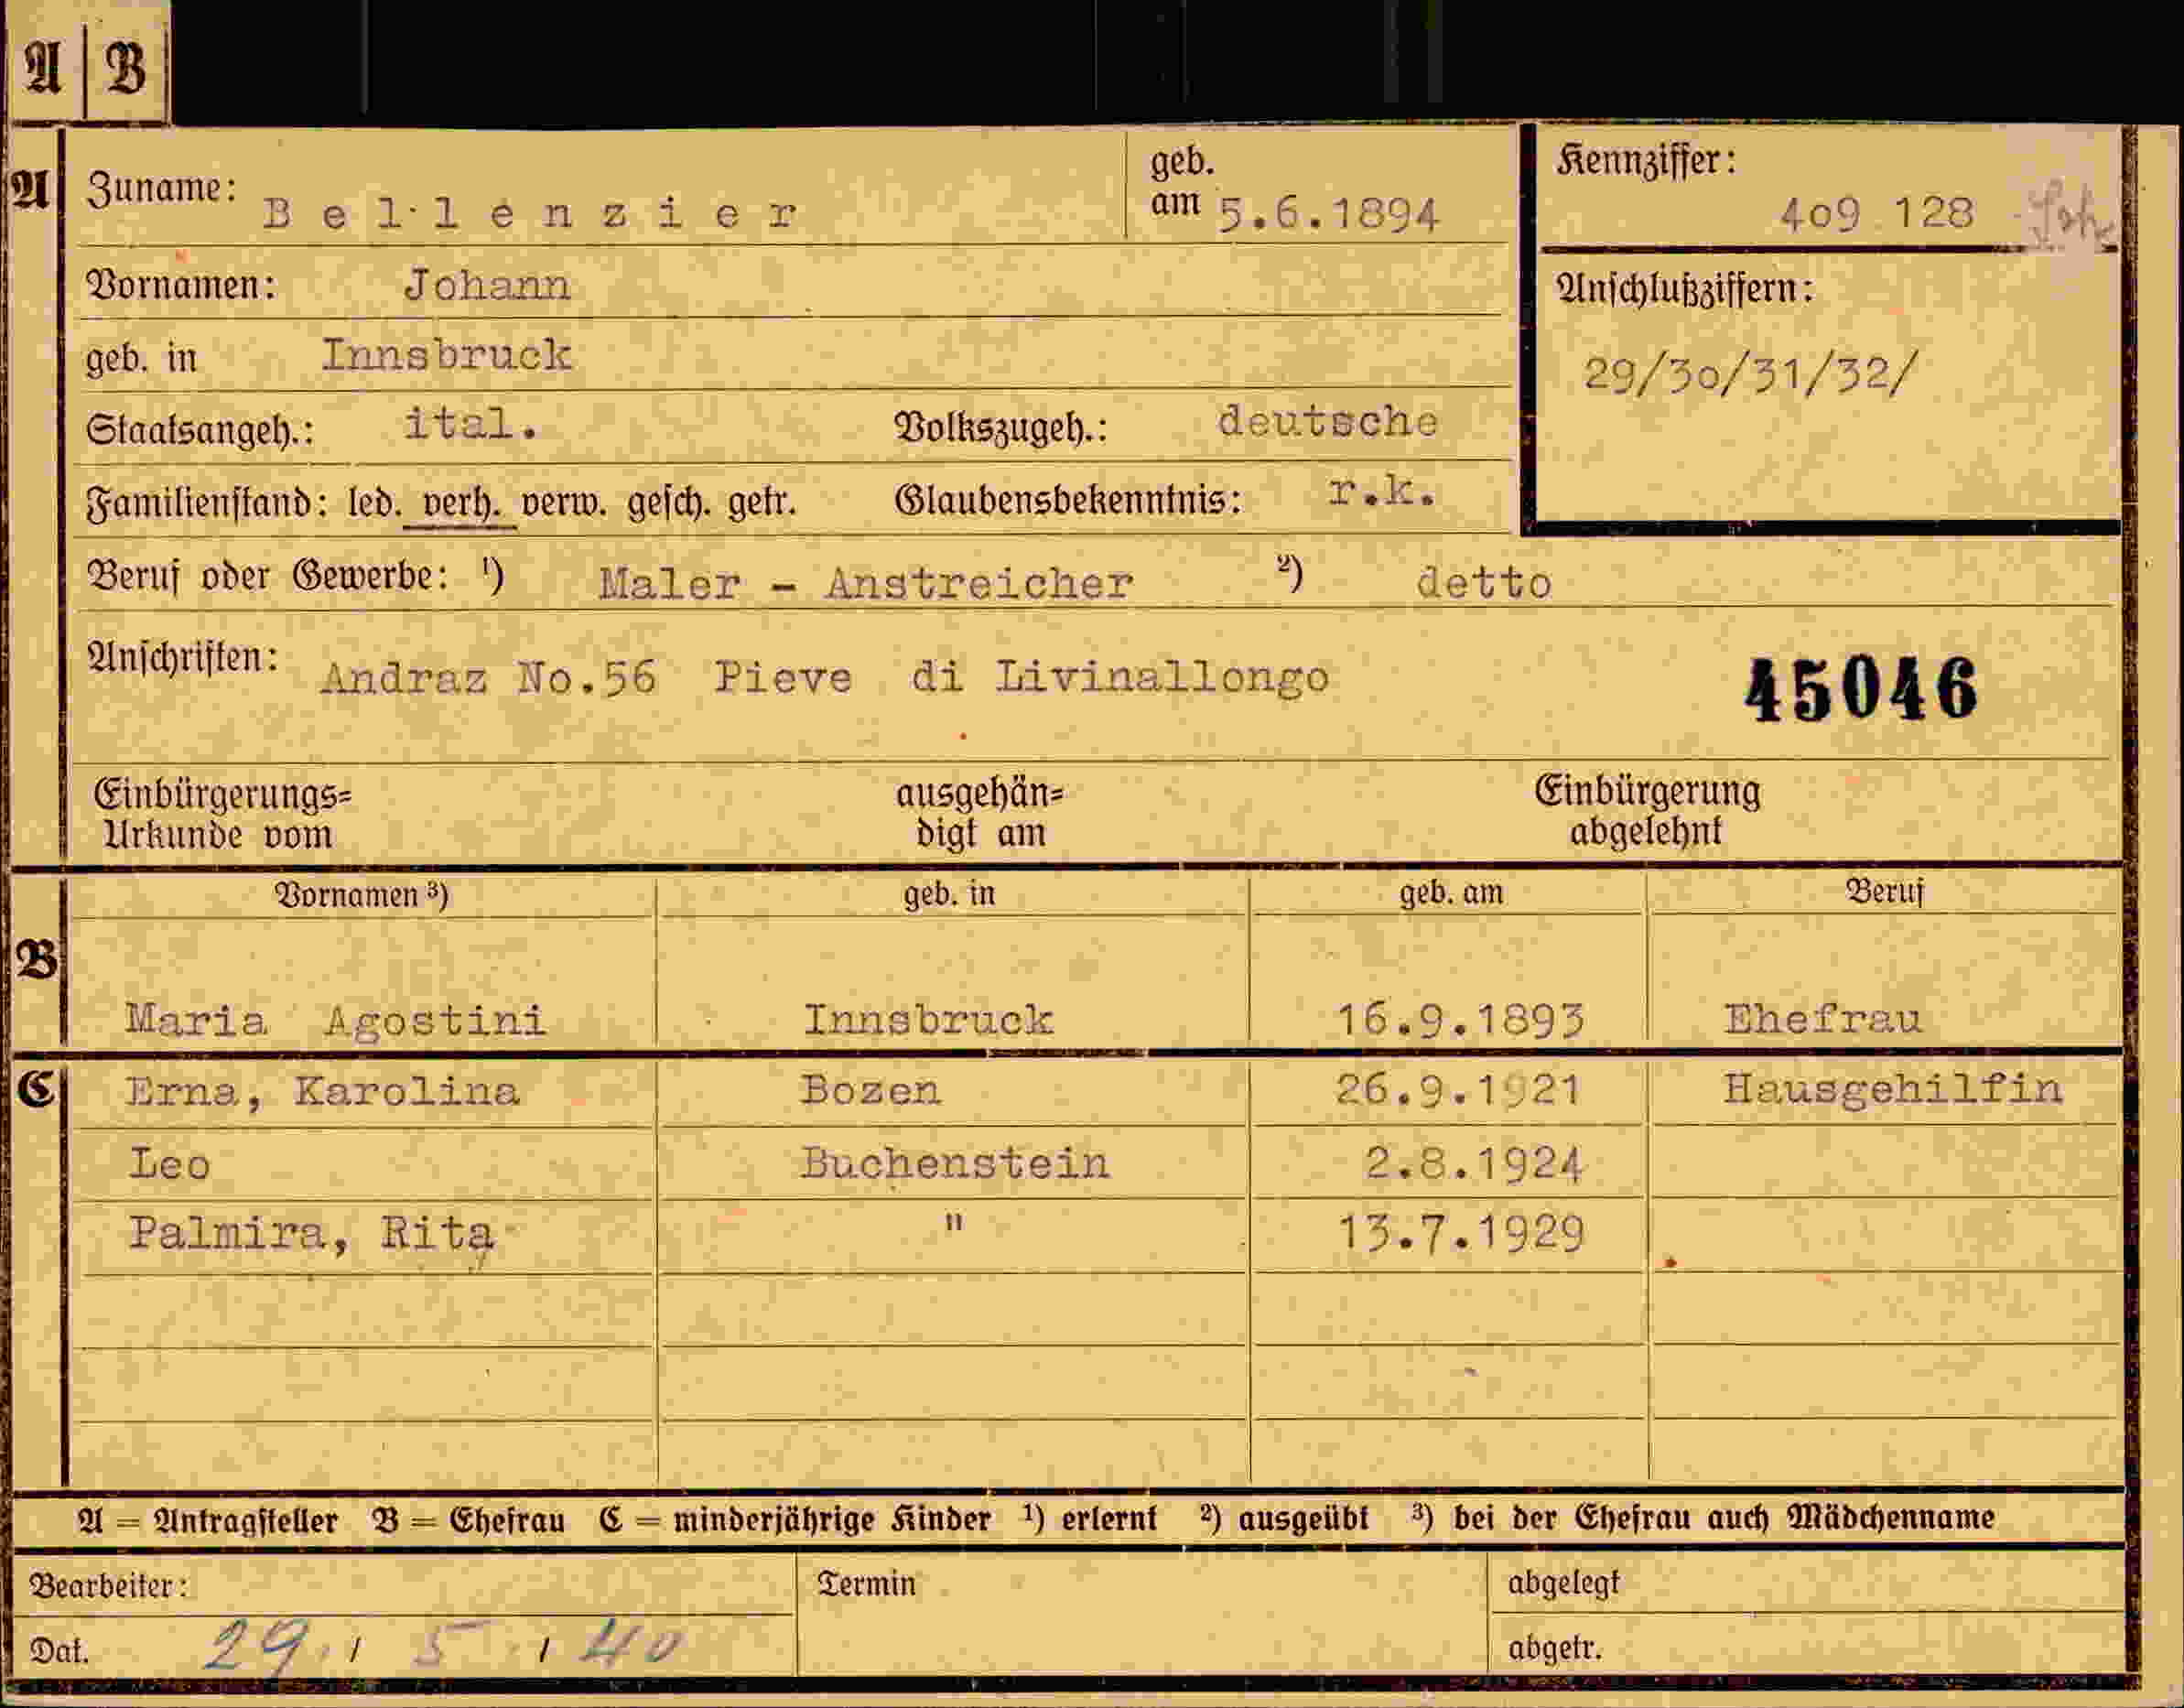 A B
A Zuname: Bellenzier geb. am 5.6.1894 Kennziffer: 4o9 128
Vornamen: Johann Anschlußziffern:
geb. in Innsbruck 29/3o/31/32/
Staatsangeh.: ital. Volkszugeh.: deutsche
Familienstand: led. verh. verw. gesch. getr. Glaubensbekenntnis: r.k.
Beruf oder Gewerbe: ¹) Maler - Anstreicher ²) detto
Anschriften: Andraz No.56 Pieve di Livinallongo 45046
Einbürgerungs= ausgehän= Einbürgerung
Urkunde vom digt am abgelehnt
Vornamen ³) geb. in geb. am Beruf
B
Maria Agostini Innsbruck 16.9.1893 Ehefrau
C Erna, Karolina Bozen 26.9.1921 Hausgehilfin
Leo Buchenstein 2.8.1924
Palmira, Rita " 13.7.1929
A = Antragsteller B = Ehefrau C = minderjährige Kinder ¹) erlernt ²) ausgeübt ³) bei der Ehefrau auch Mädchenname
Bearbeiter: Termin abgelegt
Dat. 29. / 5. / 40 abgetr.